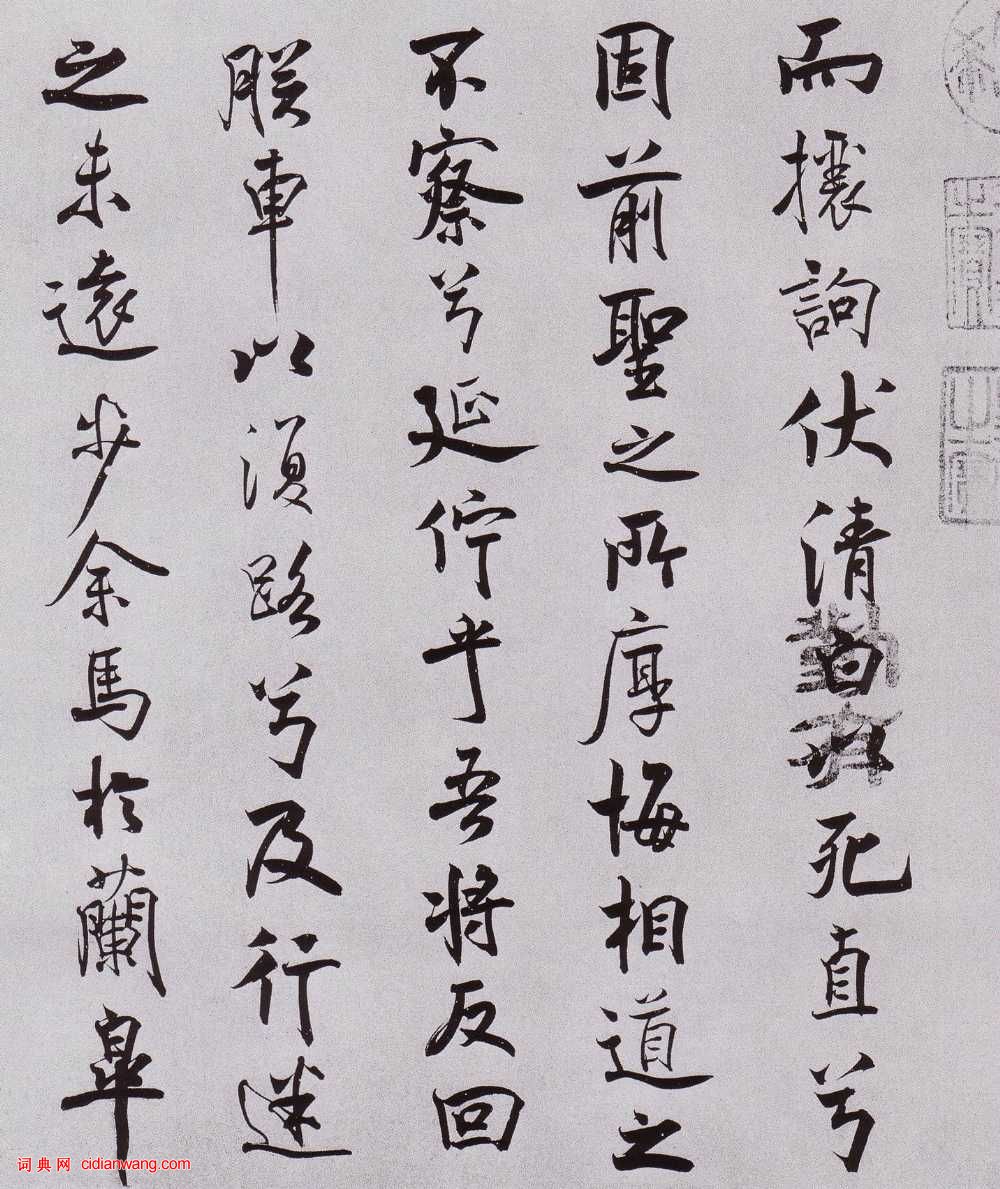 而攘詢伏清白以死直兮
固前聖之所厚悔相道之
不察兮延佇乎吾將反回
朕車以復路兮及行迷
之未遠步余馬於蘭皋
词典网 cidianwang.com